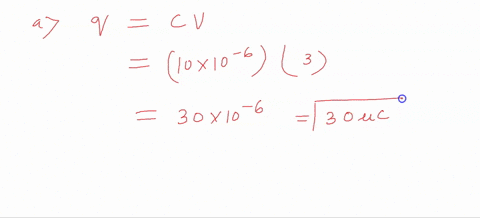 a> q = CV
= (10×10⁻⁶) (3)
= 30×10⁻⁶ = 30 uC